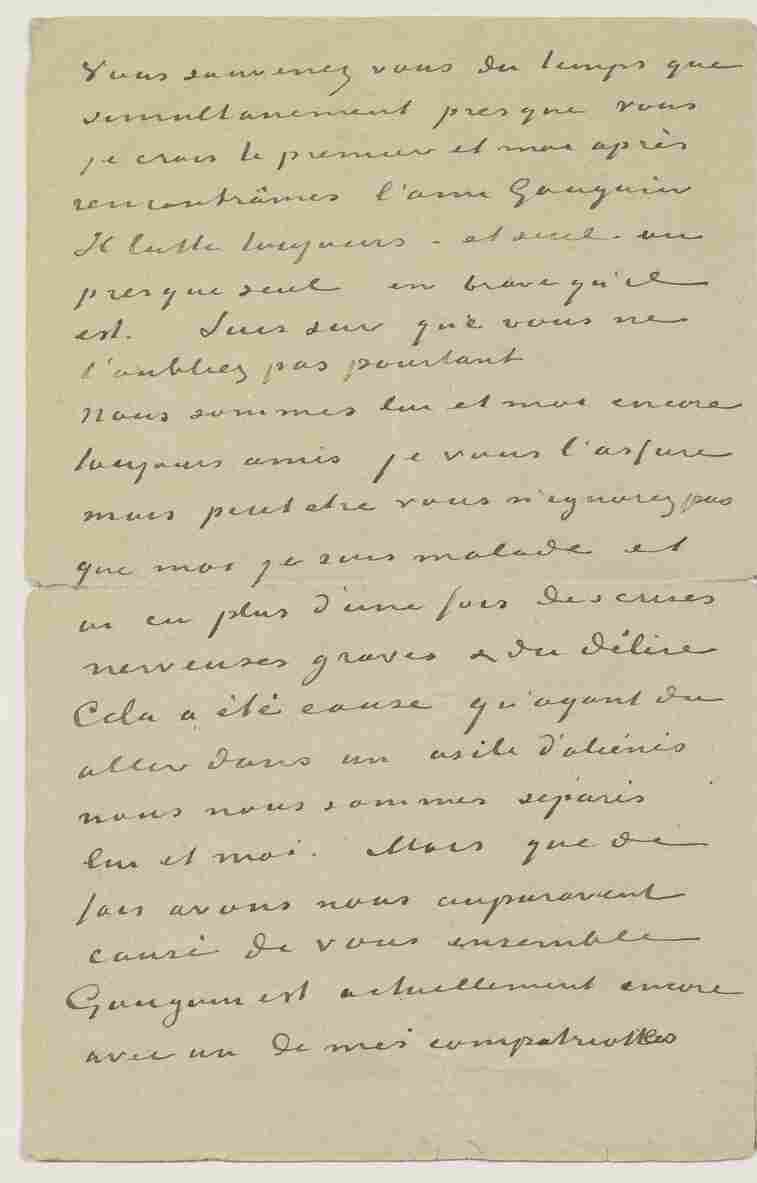 Vous souvenez vous du temps que
simultanement presque vous
je crois le premier et moi après
rencontrâmes l'ami Gauguin
Il lutte toujours - et seul - ou
presque seul en brave qu'il
est. Suis sur que vous ne
l'oubliez pas pourtant
Nous sommes lui et moi encore
toujours amis je vous l'assure
mais peut etre vous n'ignorez pas
que moi je suis malade et
ai eu plus d'une fois des crises
nerveuses graves & du délire
Cela a été cause qu'ayant du
aller dans un asile d'aliénés
nous nous sommes séparés
lui et moi. Mais que de
fois avons nous auparavant
causé de vous ensemble
Gauguin est actuellement encore
avec un de mes compatriottes